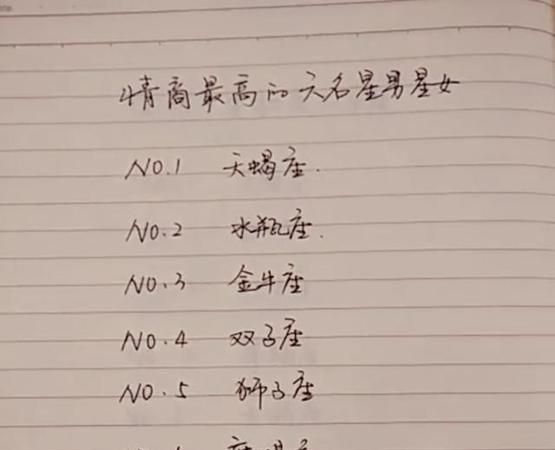 情商最高的六名星男星女
NO.1 天蝎座.
NO.2 水瓶座.
NO.3 金牛座
NO.4 双子座
NO.5 狮子座